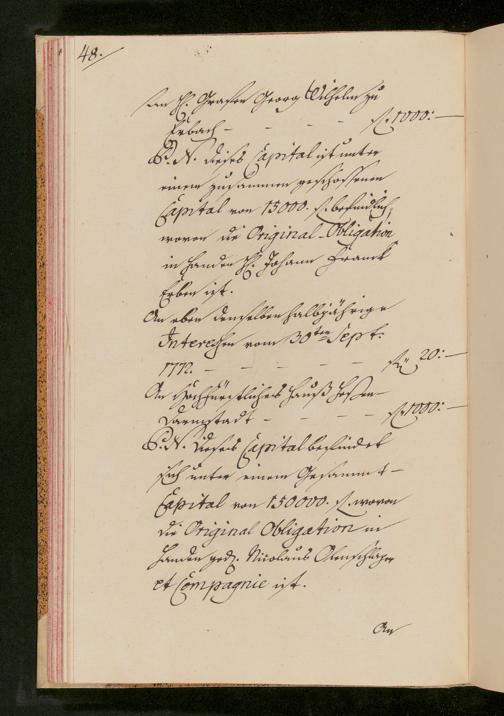 48.
An H. Grafen Georg Wilhelm zu
Erbach - - - - f. 1000:—
P. N. dieses Capital ist unter
einem zusammen geschossenen
Capital von 15000. f. befindlich,
wovon die Original-Obligation
in Handen H. Johann Franck
Erben ist.
An eben denselben halbjährige
Interessen vom 30ten Sept:
1772. - - - - f. 20:—
An Hochfürstliches Hauß Hessen-
Darmstadt - - - f. 1000:—
P. N. dieses Capital befindet
sich unter einem Gesammt-
Capital von 150000. f. wovon
die Original Obligation in
Handen Nicolaus Olenschlager
et Compagnie ist.
An